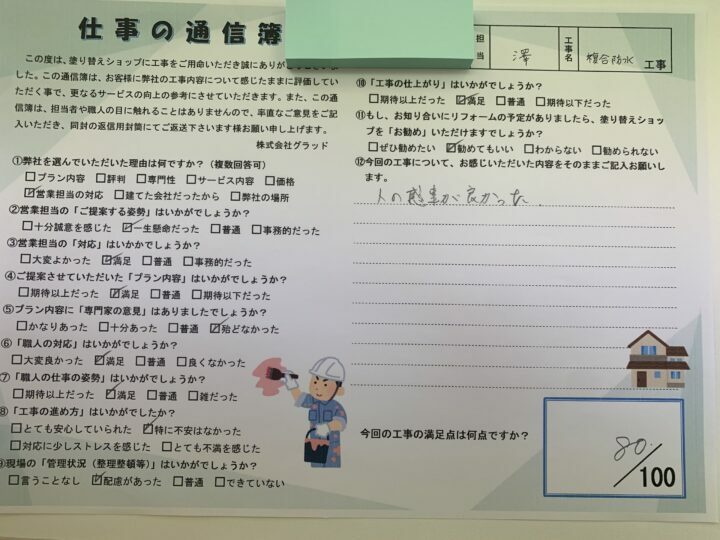 仕事の通信簿
担当
澤
工事名
複合防水
工事
この度は、塗り替えショップに工事をご用命いただき誠にありがとうございま
した。この通信簿は、お客様に弊社の工事内容について感じたままに評価してい
ただく事で、更なるサービスの向上の参考にさせていただきます。また、この通
信簿は、担当者や職人の目に触れることはありませんので、率直なご意見をご記
入いただき、同封の返信用封筒にてご返送下さいます様お願い申し上げます。
株式会社グラッド
①弊社を選んでいただいた理由は何ですか?（複数回答可）
□プラン内容 □評判 □専門性 □サービス内容 □価格
☑営業担当の対応 □建てた会社だったから □弊社の場所
②営業担当の「ご提案する姿勢」はいかがでしょうか?
□十分誠意を感じた ☑一生懸命だった □普通 □事務的だった
③営業担当の「対応」はいかがでしょうか?
□大変よかった ☑満足 □普通 □事務的だった
④ご提案させていただいた「プラン内容」はいかがでしょうか?
□期待以上だった ☑満足 □普通 □期待以下だった
⑤プラン内容に「専門家の意見」はありましたでしょうか?
□かなりあった □十分あった □普通 ☑殆どなかった
⑥「職人の対応」はいかがでしょうか?
□大変良かった ☑満足 □普通 □良くなかった
⑦「職人の仕事の姿勢」はいかがでしょうか?
□期待以上だった ☑満足 □普通 □雑だった
⑧「工事の進め方」はいかがでしたか?
□とても安心していられた ☑特に不安はなかった
□対応に少しストレスを感じた □とても不満を感じた
⑨現場の「管理状況（整理整頓等）」はいかがでしょうか?
□言うことなし ☑配慮があった □普通 □できていない
⑩「工事の仕上がり」はいかがでしょうか?
□期待以上だった ☑満足 □普通 □期待以下だった
⑪もし、お知り合いにリフォームの予定がありましたら、塗り替えショッ
プを「お勧め」いただけますでしょうか?
□ぜひ勧めたい ☑勧めてもいい □わからない □勧められない
⑫今回の工事について、お感じいただいた内容をそのままご記入お願いし
ます。
人の感じが良かった.
今回の工事の満足点は何点ですか?
80. /100